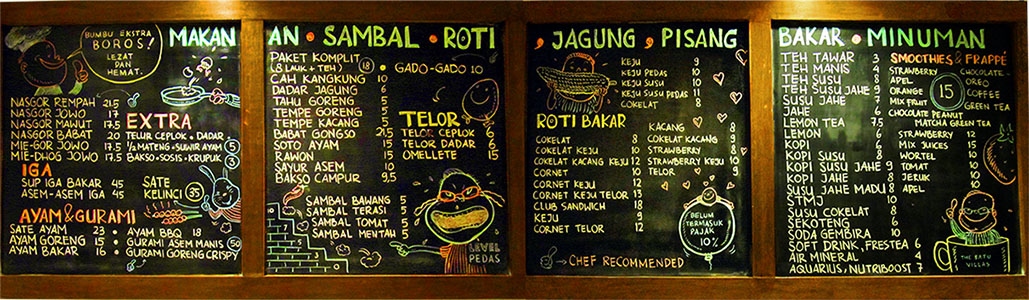 MAKAN
BUMBU EKSTRA
BOROS!
LEZAT
DAN
HEMAT.
NASGOR REMPAH 21.5
NASGOR JOWO 17
NASGOR MAWUT 17.5
NASGOR BABAT 20
MIE-GOR JOWO 17.5
MIE-DHOG JOWO 17.5
EXTRA
TELUR CEPLOK • DADAR
1/2 MATENG • SUWIR AYAM 5
BAKSO • SOSIS • KRUPUK 3
IGA
SUP IGA BAKAR 45
ASEM-ASEM IGA 45
SATE
KELINCI 35
AYAM & GURAMI
SATE AYAM 23
AYAM GORENG 15
AYAM BAKAR 16
• AYAM BBQ 18
• GURAMI ASEM MANIS 50
• GURAMI GORENG CRISPY
AN • SAMBAL • ROTI
PAKET KOMPLIT
(8 LAUK + TEH) 18
CAH KANGKUNG 10
DADAR JAGUNG 6
TAHU GORENG 5
TEMPE GORENG 5
TEMPE KACANG 5
BABAT GONGSO 21,5
SOTO AYAM 15
RAWON 15
SAYUR ASEM 5
BAKSO CAMPUR 9,5
GADO-GADO 10
TELOR
TELOR CEPLOK 6
TELOR DADAR 6
OMELLETE 15
SAMBAL BAWANG 5
SAMBAL TERASI 5
SAMBAL TOMAT 5
SAMBAL MENTAH 5
LEVEL
PEDAS
, JAGUNG , PISANG
KEJU 9
KEJU PEDAS 10
KEJU SUSU 10
KEJU SUSU PEDAS 11
COKELAT 8
ROTI BAKAR
COKELAT 8
COKELAT KEJU 10
COKELAT KACANG KEJU 12
CORNET 10
CORNET KEJU 12
CORNET KEJU TELOR 13
CLUB SANDWICH 18
KEJU 9
CORNET TELOR 12
KACANG 8
COKELAT KACANG 9
STRAWBERRY 8
STRAWBERRY KEJU 10
TELOR 9
BELUM
TERMASUK
PAJAK
10%
CHEF RECOMMENDED
BAKAR • MINUMAN
TEH TAWAR 3
TEH MANIS 4
TEH SUSU 8
TEH SUSU JAHE 9
SUSU JAHE 7
JAHE 6
LEMON TEA 7.5
LEMON 6
KOPI 5
KOPI SUSU 8
KOPI SUSU JAHE 9
KOPI JAHE 7
SUSU JAHE MADU 8
STMJ
SUSU COKELAT 8
SEKOTENG 6
SODA GEMBIRA 10
SOFT DRINK, FRESTEA 6
AIR MINERAL 4
AQUARIUS, NUTRIBOOST 7
SMOOTHIES & FRAPPÉ
STRAWBERRY
APEL
ORANGE
MIX FRUIT
15
CHOCOLATE
OREO
COFFEE
GREEN TEA
CHOCOLATE PEANUT
MATCHA GREEN TEA
STRAWBERRY 12
MIX JUICES 15
WORTEL 10
TOMAT 10
JERUK 10
APEL 10
THE BATU
VILLAS